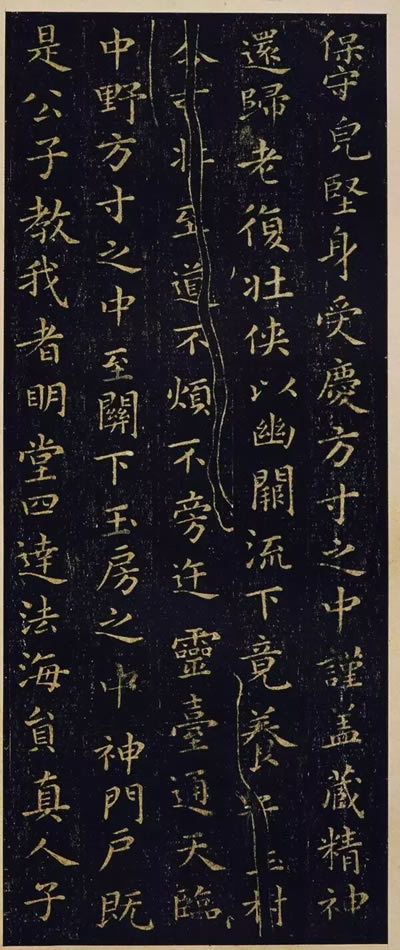 保守皃堅身受慶方寸之中謹盖藏精神
還歸老復壯俠以幽闕流下竟養玉樹
壯至道不煩不旁迕靈臺通天臨
中野方寸之中至關下玉房之中神門戶既
是公子教我者明堂四達法海員真人子